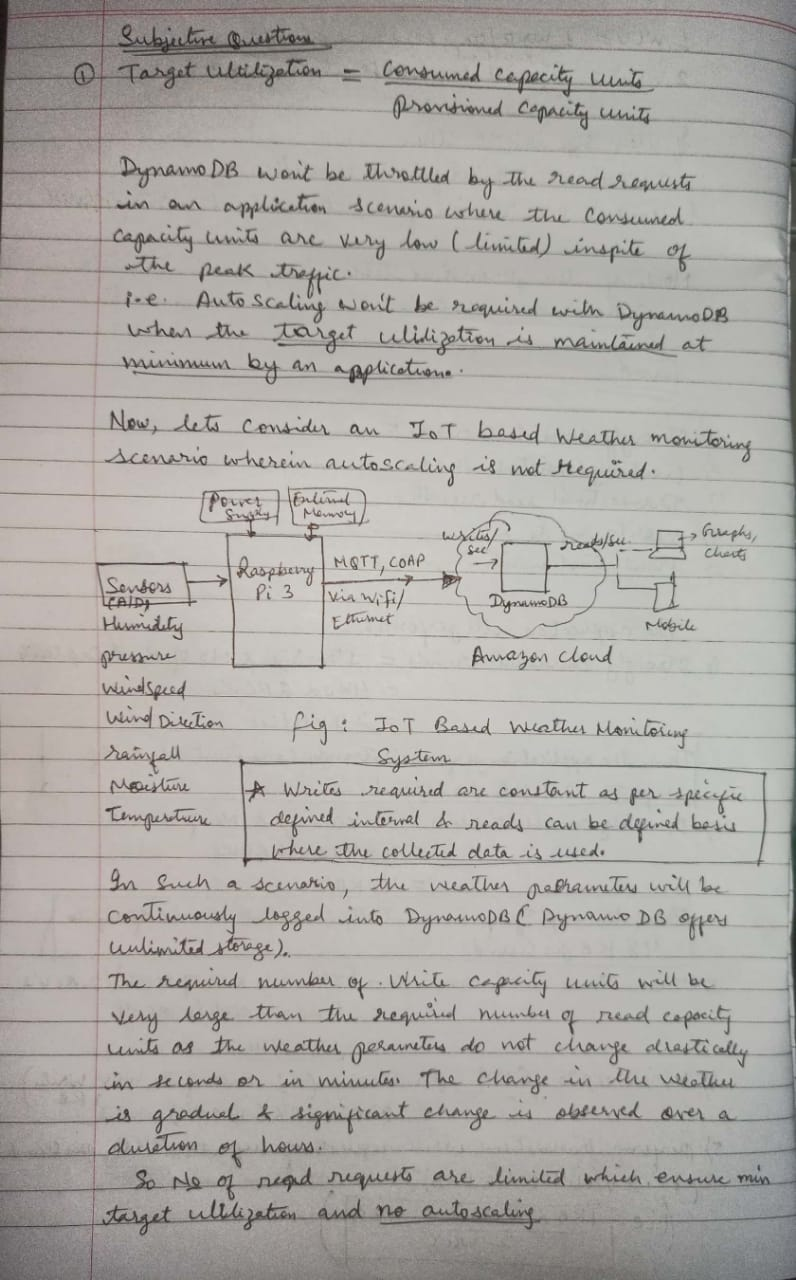 Subjective Questions
① Target Utilization = Consumed capacity units
Provisioned Capacity units
Dynamo DB won't be throttled by the read requests
in an application scenario where the consumed
capacity units are very low (limited) inspite of
the peak traffic.
i.e. Auto Scaling won't be required with DynamoDB
when the target utilization is maintained at
minimum by an application.
Now, lets consider an IoT based Weather monitoring
scenario wherein autoscaling is not required.
Power Supply
External Memory
Sensors
(A/D)
Raspberry
Pi 3
MQTT, COAP
Via Wifi/
Ethernet
writes/
sec
DynamoDB
reads/sec
Graphs,
charts
Mobile
Amazon Cloud
Humidity
pressure
WindSpeed
Wind Direction
rainfall
Moisture
Temperature
fig : IoT Based Weather Monitoring
System
* Writes required are constant as per specific
defined interval & reads can be defined basis
where the collected data is used.
In Such a scenario, the weather parameters will be
continuously logged into DynamoDB ( Dynamo DB offers
unlimited storage).
The required number of Write capacity units will be
very large than the required number of read capacity
units as the weather parameters do not change drastically
in seconds or in minutes. The change in the weather
is gradual & significant change is observed over a
duration of hours.
So No of read requests are limited which ensure min
target utilization and no autoscaling